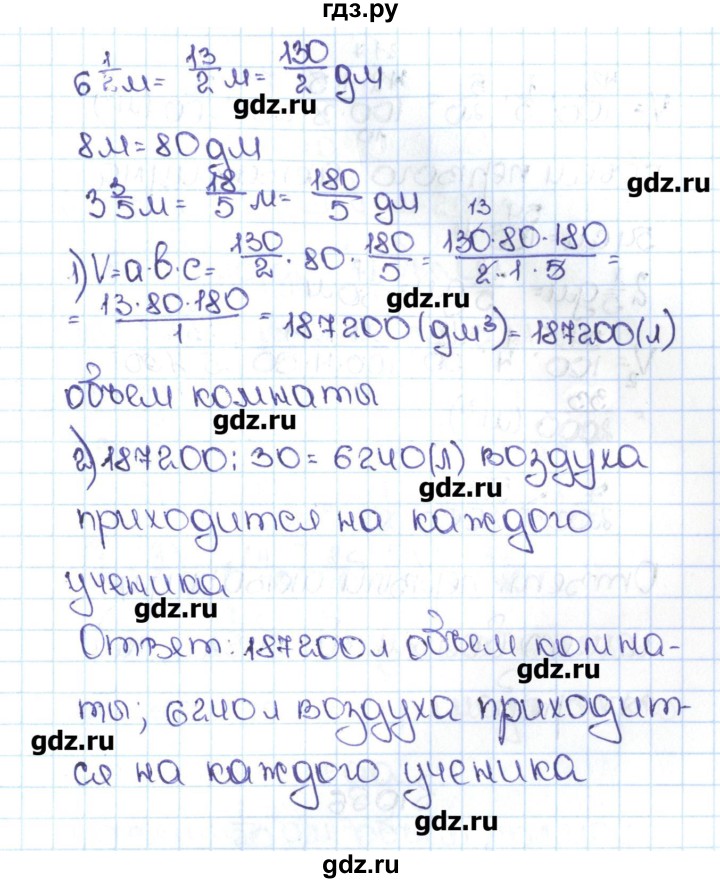 гдз.ру
6 1/2 м = 13/2 м = 130/2 дм
gdz.ru
8 м = 80 дм
gdz.ru
3 3/5 м = 18/5 м = 180/5 дм
13
1) V = a · b · c = 130/2 · 80 · 180/5 = 130·80·180/2·1·5 =
gdz.ru
= 13·80·180/1 = 187200 (дм³) = 187200 (л)
объем комнаты
gdz.ru
2) 187200 : 30 = 6240 (л) воздуха
gdz.ru
приходится на каждого
ученика
gdz.ru
Ответ: 187200 л объем комна-
gdz.ru
ты; 6240 л воздуха приходит-
gdz.ru
ся на каждого ученика
gdz.ru
gdz.ru